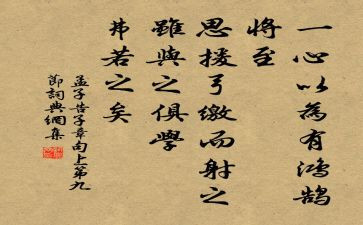 一心以為有鴻鵠
將至
思援弓繳而射之
雖與之俱學
弗若之矣
孟子告子章句上第九
節詞典網集